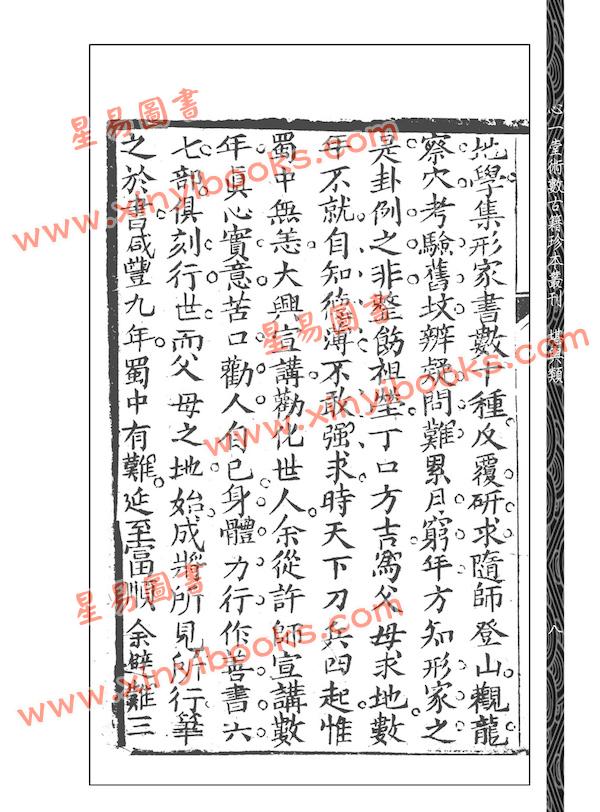 地學集形家書數十種反覆研求隨師登山觀龍
察穴考驗舊坟辨疑問難累月窮年方知形家之
是卦例之非整飭祖塋丁口方吉爲父母求地數
年不就自知德薄不敢强求時天下刀兵四起惟
蜀中無恙大興宣講勸化世人余從許師宣講數
年眞心實意苦口勸人自己身體力行作善書六
七部俱刻行世而父母之地始成將所見所行筆
之於書咸豐九年蜀中有難延至富順余避難三
心一堂術數古籍珍本叢刊 堪輿類
八
星易圖書
www.xinyibooks.com
星易圖書
www.xinyibooks.com
星易圖書
www.xinyibooks.com